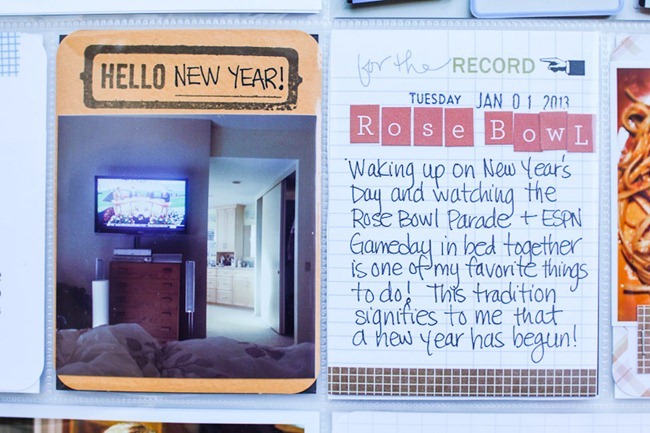 HELLO NEW YEAR!
for the RECORD
TUESDAY JAN 01 2013
Rose Bowl
Waking up on New Year's
Day and watching the
Rose Bowl Parade + ESPN
Gameday in bed together
is one of my favorite things
to do! This tradition
signifies to me that
a new year has begun!